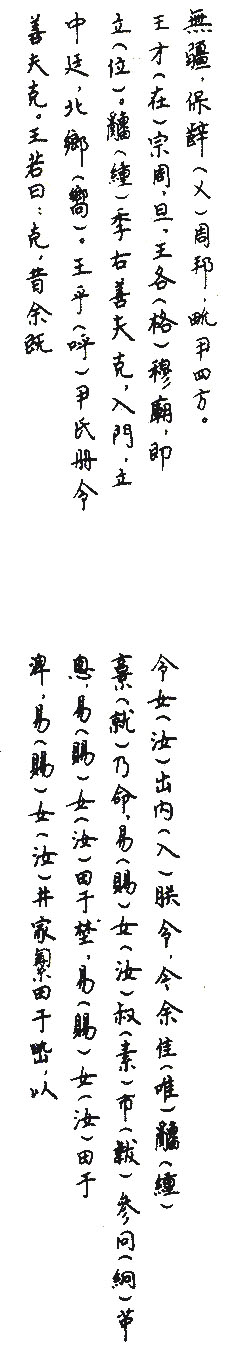 無疆,保辥(乂)周邦,畯尹四方。
王才(在)宗周,旦,王各(格)穆廟,即
立(位)。䌛(緟)季右善夫克,入門,立
中廷,北鄉(嚮)。王乎(呼)尹氏册令
善夫克。王若曰:克,昔余既
令女(汝)出内(入)朕令,今余隹(唯)䌛(緟)
𩫏(就)乃命,易(賜)女(汝)叔(素)巿(韍)參冋(絅)䒤
悤,易(賜)女(汝)田于埜,易(賜)女(汝)田于
渒,易(賜)女(汝)井家田于,以